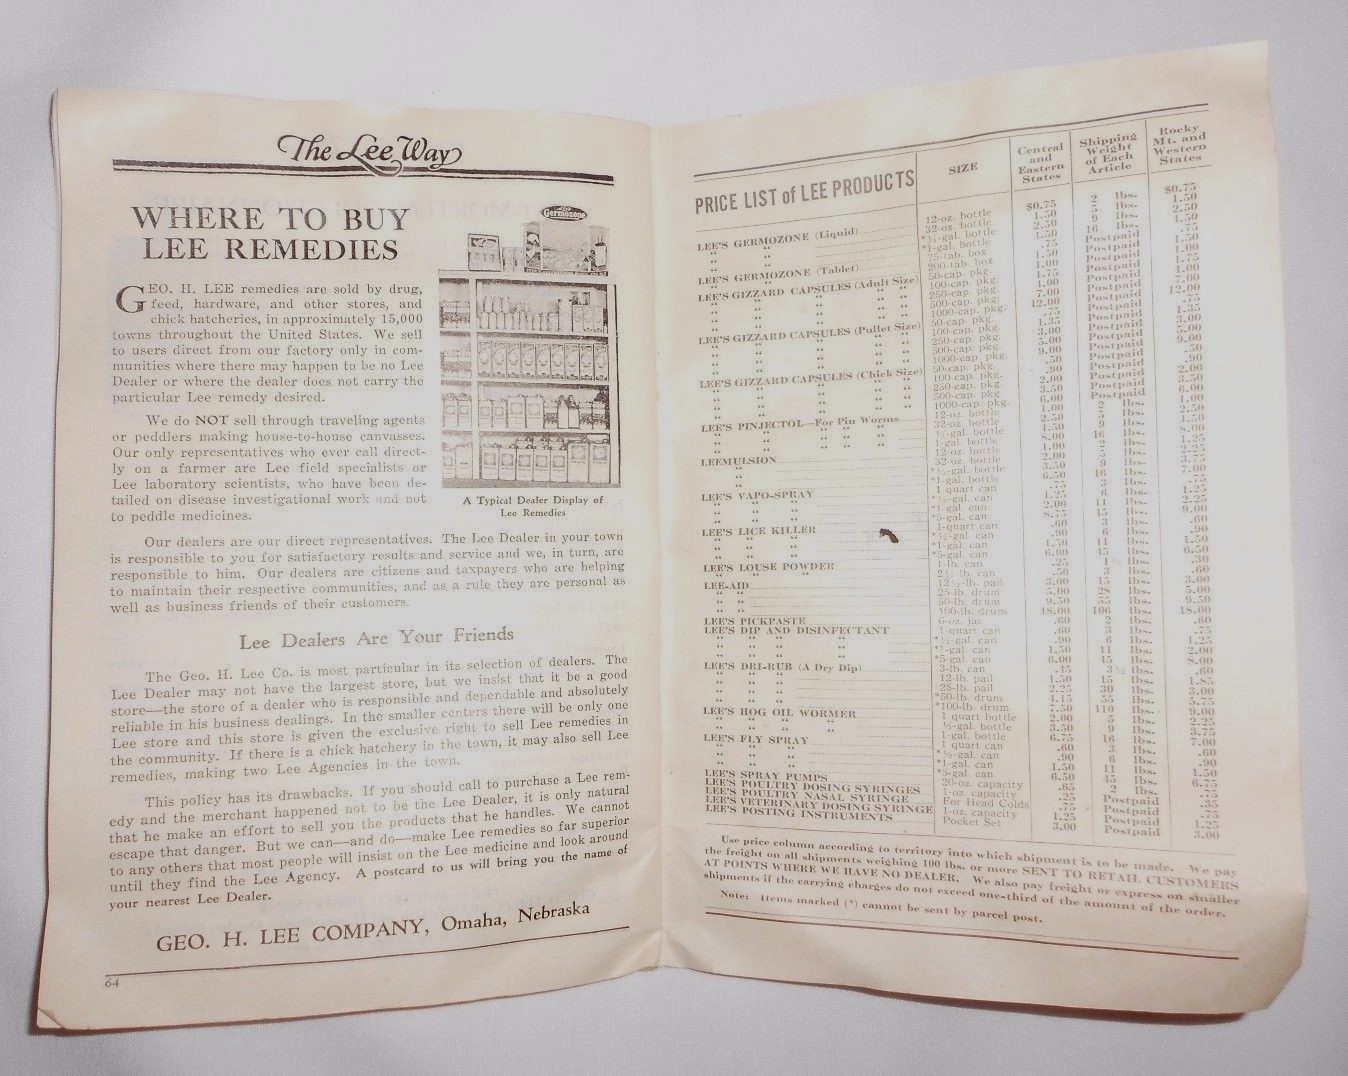 The Lee Way
WHERE TO BUY
LEE REMEDIES
GEO. H. LEE remedies are sold by drug,
feed, hardware, and other stores, and
chick hatcheries, in approximately 15,000
towns throughout the United States. We sell
to users direct from our factory only in com-
munities where there may happen to be no Lee
Dealer or where the dealer does not carry the
particular Lee remedy desired.
We do NOT sell through traveling agents
or peddlers making house-to-house canvasses.
Our only representatives who ever call direct-
ly on a farmer are Lee field specialists or
Lee laboratory scientists, who have been de-
tailed on disease investigational work and not
to peddle medicines.
Germozone
A Typical Dealer Display of
Lee Remedies
Our dealers are our direct representatives. The Lee Dealer in your town
is responsible to you for satisfactory results and service and we, in turn, are
responsible to him. Our dealers are citizens and taxpayers who are helping
to maintain their respective communities, and as a rule they are personal as
well as business friends of their customers.
Lee Dealers Are Your Friends
The Geo. H. Lee Co. is most particular in its selection of dealers. The
Lee Dealer may not have the largest store, but we insist that it be a good
store—the store of a dealer who is responsible and dependable and absolutely
reliable in his business dealings. In the smaller centers there will be only one
Lee store and this store is given the exclusive right to sell Lee remedies in
the community. If there is a chick hatchery in the town, it may also sell Lee
remedies, making two Lee Agencies in the town.
This policy has its drawbacks. If you should call to purchase a Lee rem-
edy and the merchant happened not to be the Lee Dealer, it is only natural
that he make an effort to sell you the products that he handles. We cannot
escape that danger. But we can—and do—make Lee remedies so far superior
to any others that most people will insist on the Lee medicine and look around
until they find the Lee Agency. A postcard to us will bring you the name of
your nearest Lee Dealer.
GEO. H. LEE COMPANY, Omaha, Nebraska
64
PRICE LIST of LEE PRODUCTS SIZE Central and Eastern States Shipping Weight of Each Article Rocky Mt. and Western States
LEE'S GERMOZONE (Liquid) 12-oz. bottle $0.75 2 lbs. $0.75
" " 32-oz. bottle 1.50 5 lbs. 1.50
" " *½-gal. bottle 2.50 9 lbs. 2.50
" " *1-gal. bottle 16 lbs.
LEE'S GERMOZONE (Tablet) 75-tab. box .75 Postpaid .75
" " 200-tab. box 1.50 Postpaid 1.50
LEE'S GIZZARD CAPSULES (Adult Size) 50-cap. pkg. 1.00 Postpaid 1.00
" " " " 100-cap. pkg. 1.75 Postpaid 1.75
" " " " 250-cap. pkg. Postpaid
" " " " 500-cap. pkg. 7.00 Postpaid 7.00
" " " " 1000-cap. pkg. 12.00 Postpaid 12.00
LEE'S GIZZARD CAPSULES (Pullet Size) 50-cap. pkg. .75 Postpaid .75
" " " " 100-cap. pkg. 1.35 Postpaid 1.35
" " " " 250-cap. pkg. 3.00 Postpaid 3.00
" " " " 500-cap. pkg. 5.00 Postpaid 5.00
" " " " 1000-cap. pkg. 9.00 Postpaid 9.00
LEE'S GIZZARD CAPSULES (Chick Size) 50-cap. pkg. .50 Postpaid .50
" " " " 100-cap. pkg. .90 Postpaid .90
" " " " 250-cap. pkg. 2.00 Postpaid 2.00
" " " " 500-cap. pkg. 3.50 Postpaid 3.50
" " " " 1000-cap. pkg. 6.00 Postpaid 6.00
LEE'S PINJECTOL—For Pin Worms 12-oz. bottle 1.00 2 lbs. 1.00
" " " " " 32-oz. bottle 2.50 5 lbs. 2.50
" " " " " ½-gal. bottle 9 lbs.
" " " " " 1-gal. bottle 8.00 16 lbs. 8.00
LEEMULSION 12-oz. bottle 1.00 2 lbs. 1.25
" 32-oz. bottle 2.00 5 lbs. 2.25
" *½-gal. bottle 3.50 9 lbs. 3.75
" *1-gal. bottle 6.50 16 lbs. 7.00
LEE'S VAPO-SPRAY 1 quart can .75 3 lbs. .75
" " *½-gal. can 1.25 6 lbs. 1.25
" " *1-gal. can 2.00 11 lbs. 2.25
" " *5-gal. can 8.75 45 lbs. 9.00
LEE'S LICE KILLER 1-quart can .60 3 lbs. .60
" " *½-gal. can .90 6 lbs. .90
" " *1-gal. can 1.50 11 lbs. 1.50
" " *5-gal. can 6.00 45 lbs. 6.50
LEE'S LOUSE POWDER 1-lb. can .25 1½ lbs. .30
" " " 2½-lb. can .50 3 lbs. .60
LEE-AID 12½-lb. pail 3.00 15 lbs. 3.00
" " 25-lb. drum 5.00 28 lbs. 5.00
" " 50-lb. drum 9.50 55 lbs. 9.50
" " 100-lb. drum 18.00 106 lbs. 18.00
LEE'S PICKPASTE 6-oz. jar .60 2 lbs. .60
LEE'S DIP AND DISINFECTANT 1-quart can .60 3 lbs. .75
" " " *½-gal. can .90 6 lbs. 1.25
" " " *1-gal. can 1.50 11 lbs. 2.00
" " " *5-gal. can 6.00 45 lbs. 8.00
LEE'S DRI-RUB (A Dry Dip) 3-lb. can .45 3½ lbs. .60
" " " " " 12-lb. pail 1.50 15 lbs. 1.85
" " " " " 25-lb. pail 2.25 30 lbs. 3.00
" " " " " *50-lb. drum 4.15 55 lbs. 5.75
" " " " " *100-lb. drum 7.50 110 lbs. 9.00
LEE'S HOG OIL WORMER 1 quart bottle 2.00 5 lbs. 2.25
" " " " ½-gal. bottle 3.50 9 lbs. 3.75
" " " " 1-gal. bottle 6.75 16 lbs. 7.00
LEE'S FLY SPRAY 1 quart can .60 3 lbs. .60
" " " *½-gal. can .90 6 lbs. .90
" " " *1-gal. can 1.50 11 lbs. 1.50
" " " *5-gal. can 6.50 45 lbs. 6.75
LEE'S SPRAY PUMPS 20-oz. capacity .65 2 lbs. .75
LEE'S POULTRY DOSING SYRINGES 1-oz. capacity .25 Postpaid .35
LEE'S POULTRY NASAL SYRINGE For Head Colds .75 Postpaid .75
LEE'S VETERINARY DOSING SYRINGE 1-oz. capacity 1.25 Postpaid 1.25
LEE'S POSTING INSTRUMENTS Pocket Set 3.00 Postpaid 3.00
Use price column according to territory into which shipment is to be made. We pay
the freight on all shipments weighing 100 lbs. or more SENT TO RETAIL CUSTOMERS
AT POINTS WHERE WE HAVE NO DEALER. We also pay freight or express on smaller
shipments if the carrying charges do not exceed one-third of the amount of the order.
Note: Items marked (*) cannot be sent by parcel post.